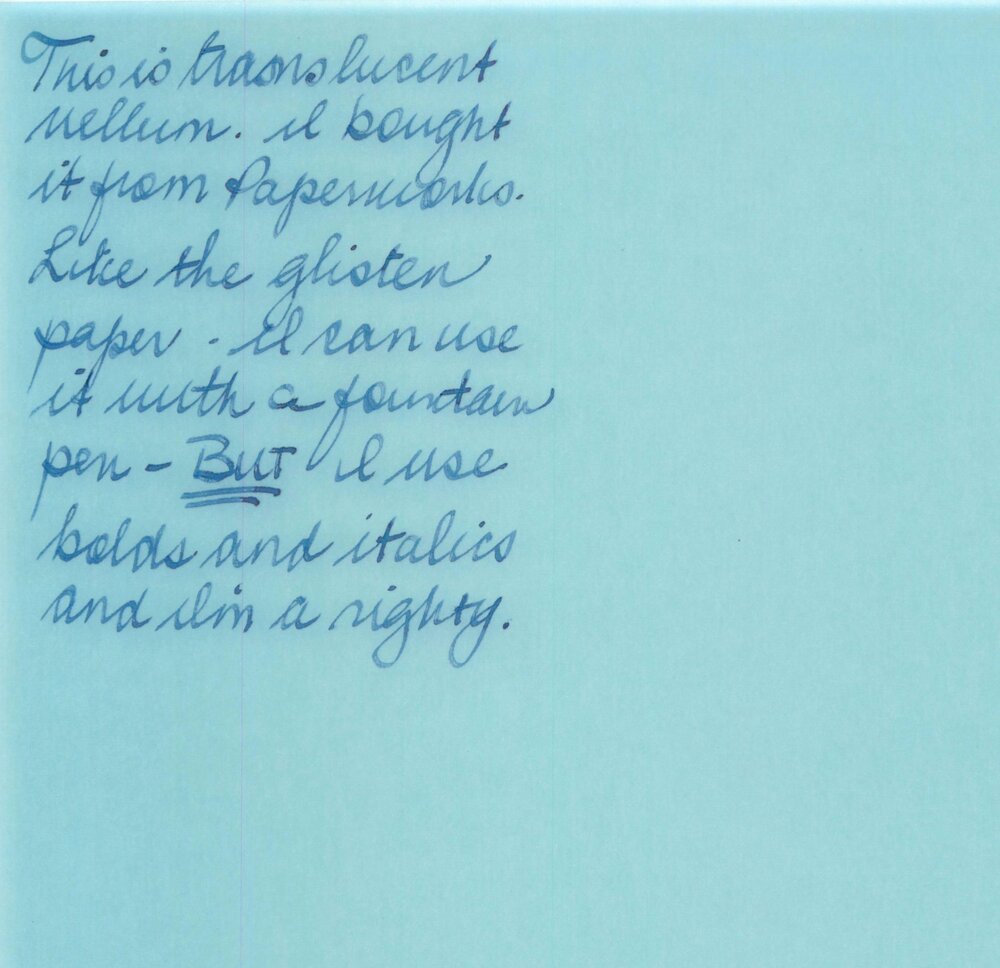 This is translucent
vellum. I bought
it from Paperworks.
Like the glisten
paper - I can use
it with a fountain
pen - BUT I use
bolds and italics
and I'm a righty.